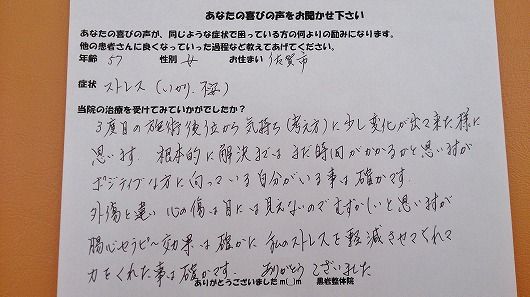 あなたの喜びの声をお聞かせ下さい
あなたの喜びの声が、同じような症状で困っている方の何よりの励みになります。
他の患者さんに良くなっていった過程など教えてあげてください。
年齢 57 性別 女 お住まい 佐賀市
症状 ストレス(いかり、
当院の治療を受けてみていかがでしたか?
3度目の施術後位から気持ち(考え方)に少し変化が出て来た様に
思います。根本的に解決までは まだ時間がかかるかと思いますが
ポジティブな方に向っている自分がいる事は確かです。
外傷と違い 心の傷は目には見えないのでむずかしいと思いますが
腸心セラピー効果は確かに 私のストレスを軽減させてくれて
力をくれた事は確かです。 ありがとう ございました
ありがとうございましたm(__)m 黒岩整体院